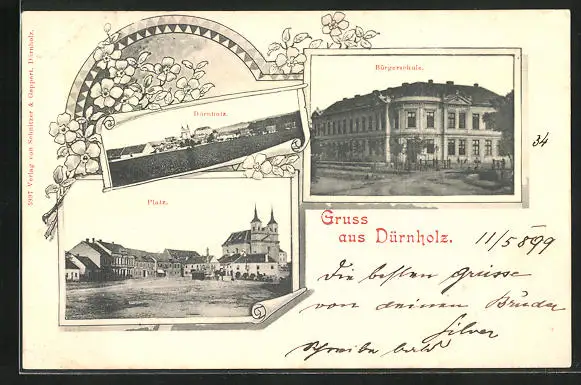 5997 Verlag von Schnitzer & Geppert, Dürnholz.
Bürgerschule.
Dürnholz.
Platz.
Gruss
aus Dürnholz.
34
11/5 899
Die besten Grüsse
von deinem Bruder
Silver
Schreibe bald